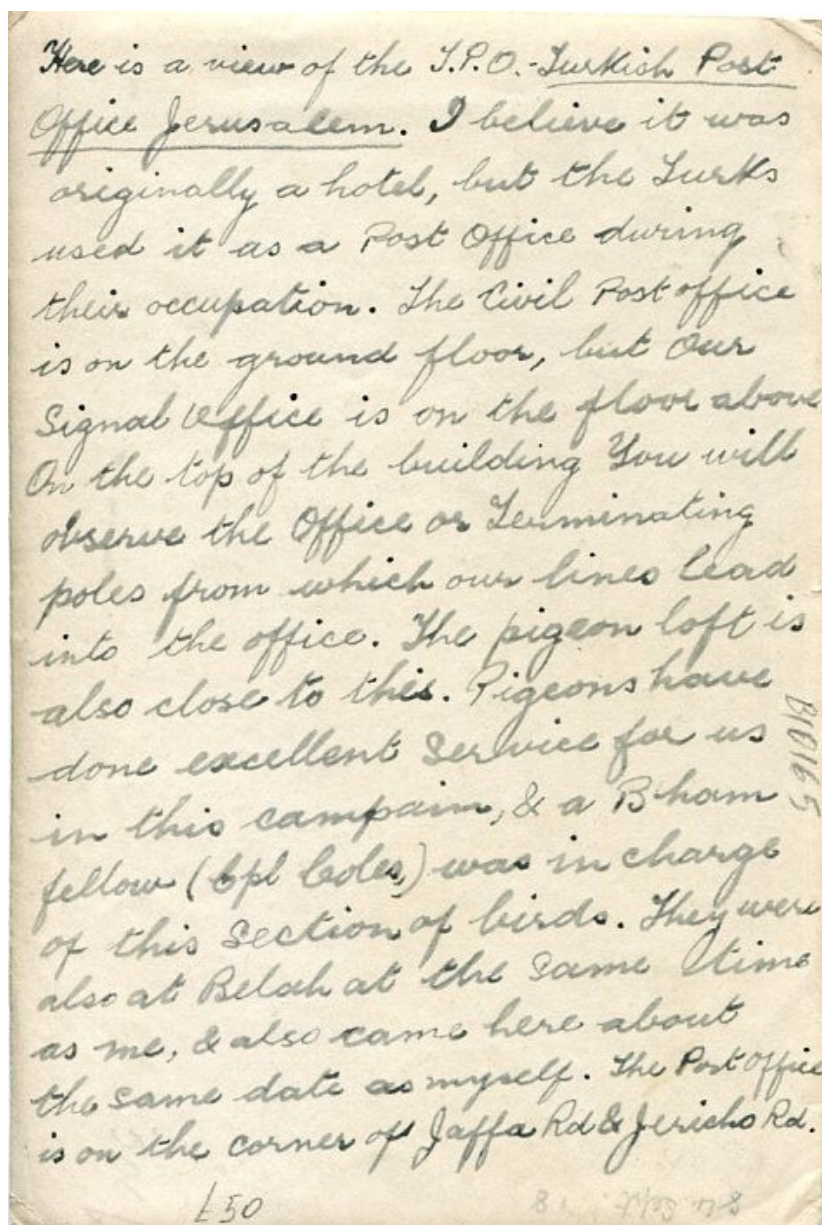 Here is a view of the T.P.O.-Turkish Post
Office Jerusalem. I believe it was
originally a hotel, but the Turks
used it as a Post Office during
their occupation. The Civil Post office
is on the ground floor, but Our
Signal Office is on the floor above
On the top of the building You will
observe the Office or Terminating
poles from which our lines lead
into the office. The pigeon loft is
also close to this. Pigeons have
done excellent Service for us
in this campain, & a B'ham
fellow (Cpl Coles,) was in charge
of this Section of birds. They were
also at Belah at the same time
as me, & also came here about
the same date as myself. The Post Office
is on the corner of Jaffa Rd & Jericho Rd.
£50